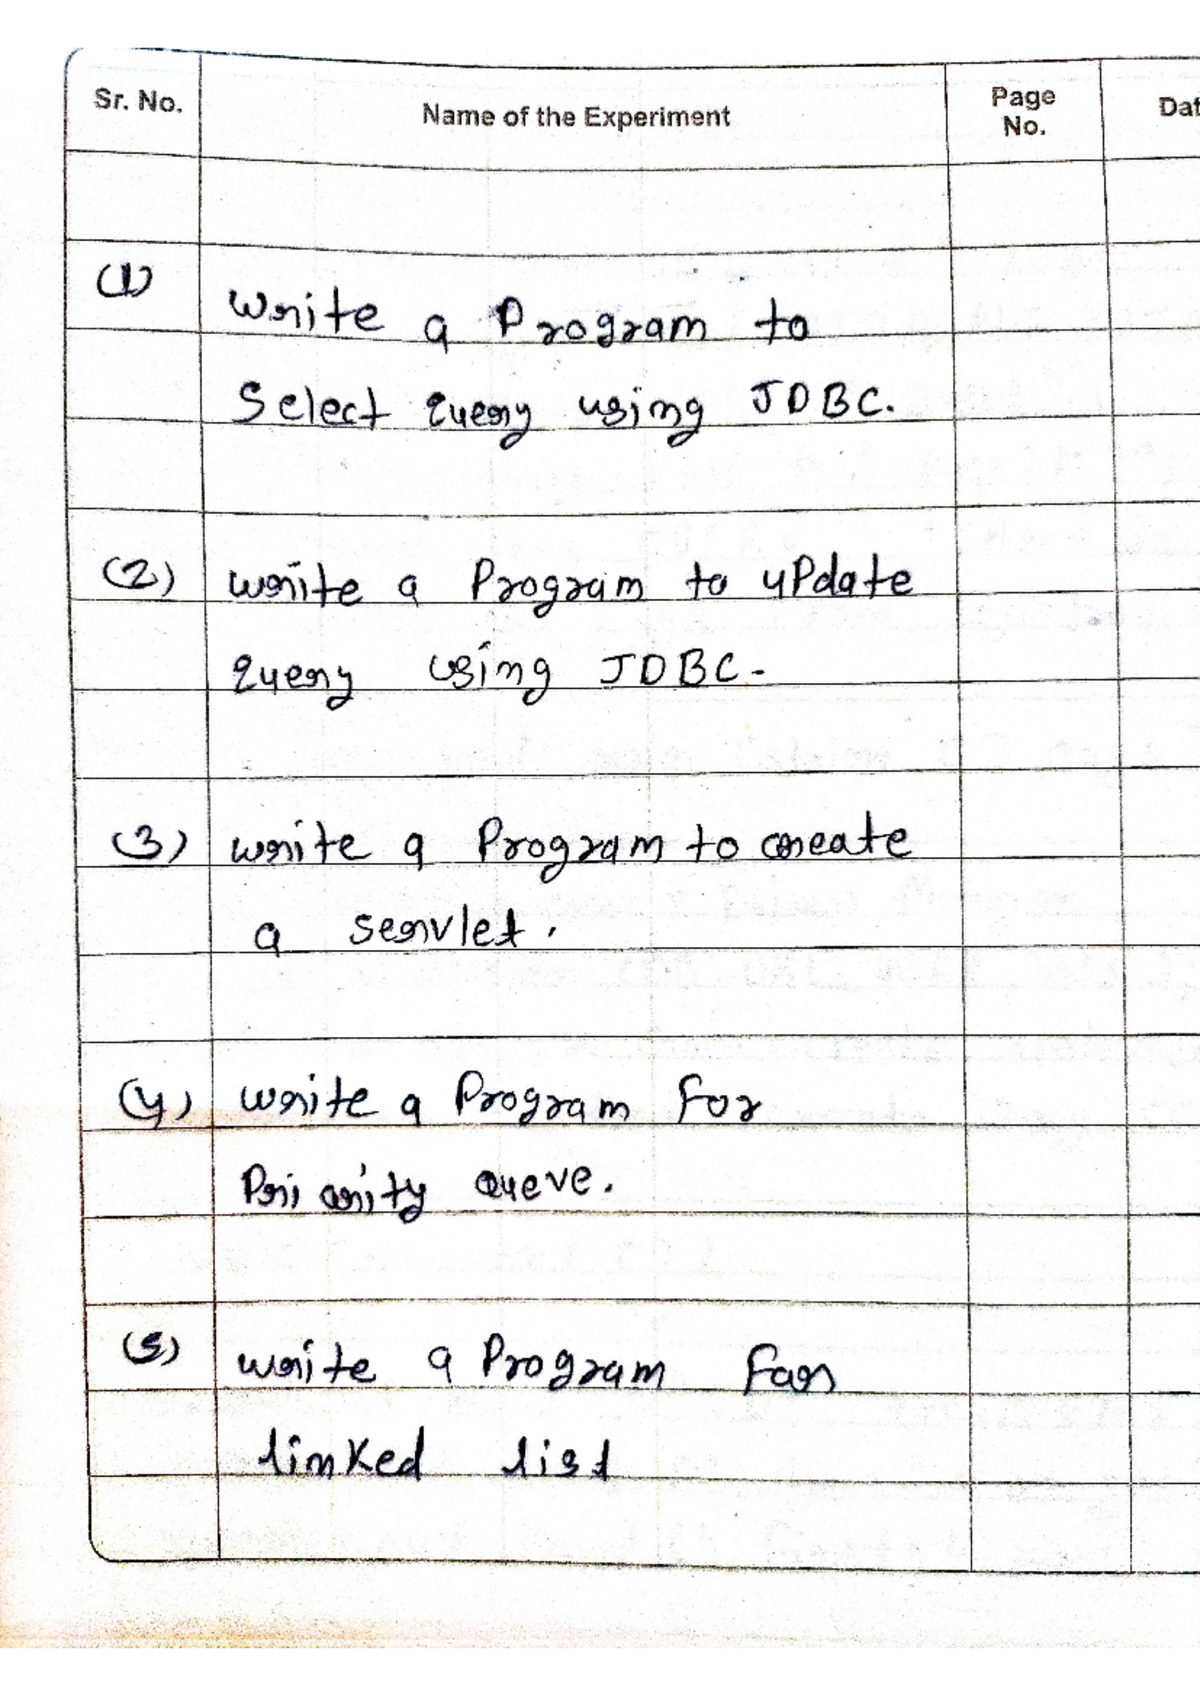 Sr. No.
Name of the Experiment
Page
No.
Dat
(1)
Write a Program to
Select query using JDBC.
(2) write a Program to uPdate
query using JDBC-
(3) write a Program to create
a servlet.
(4) write a Program For
Priority Queue.
(5) write a Program For
linked list